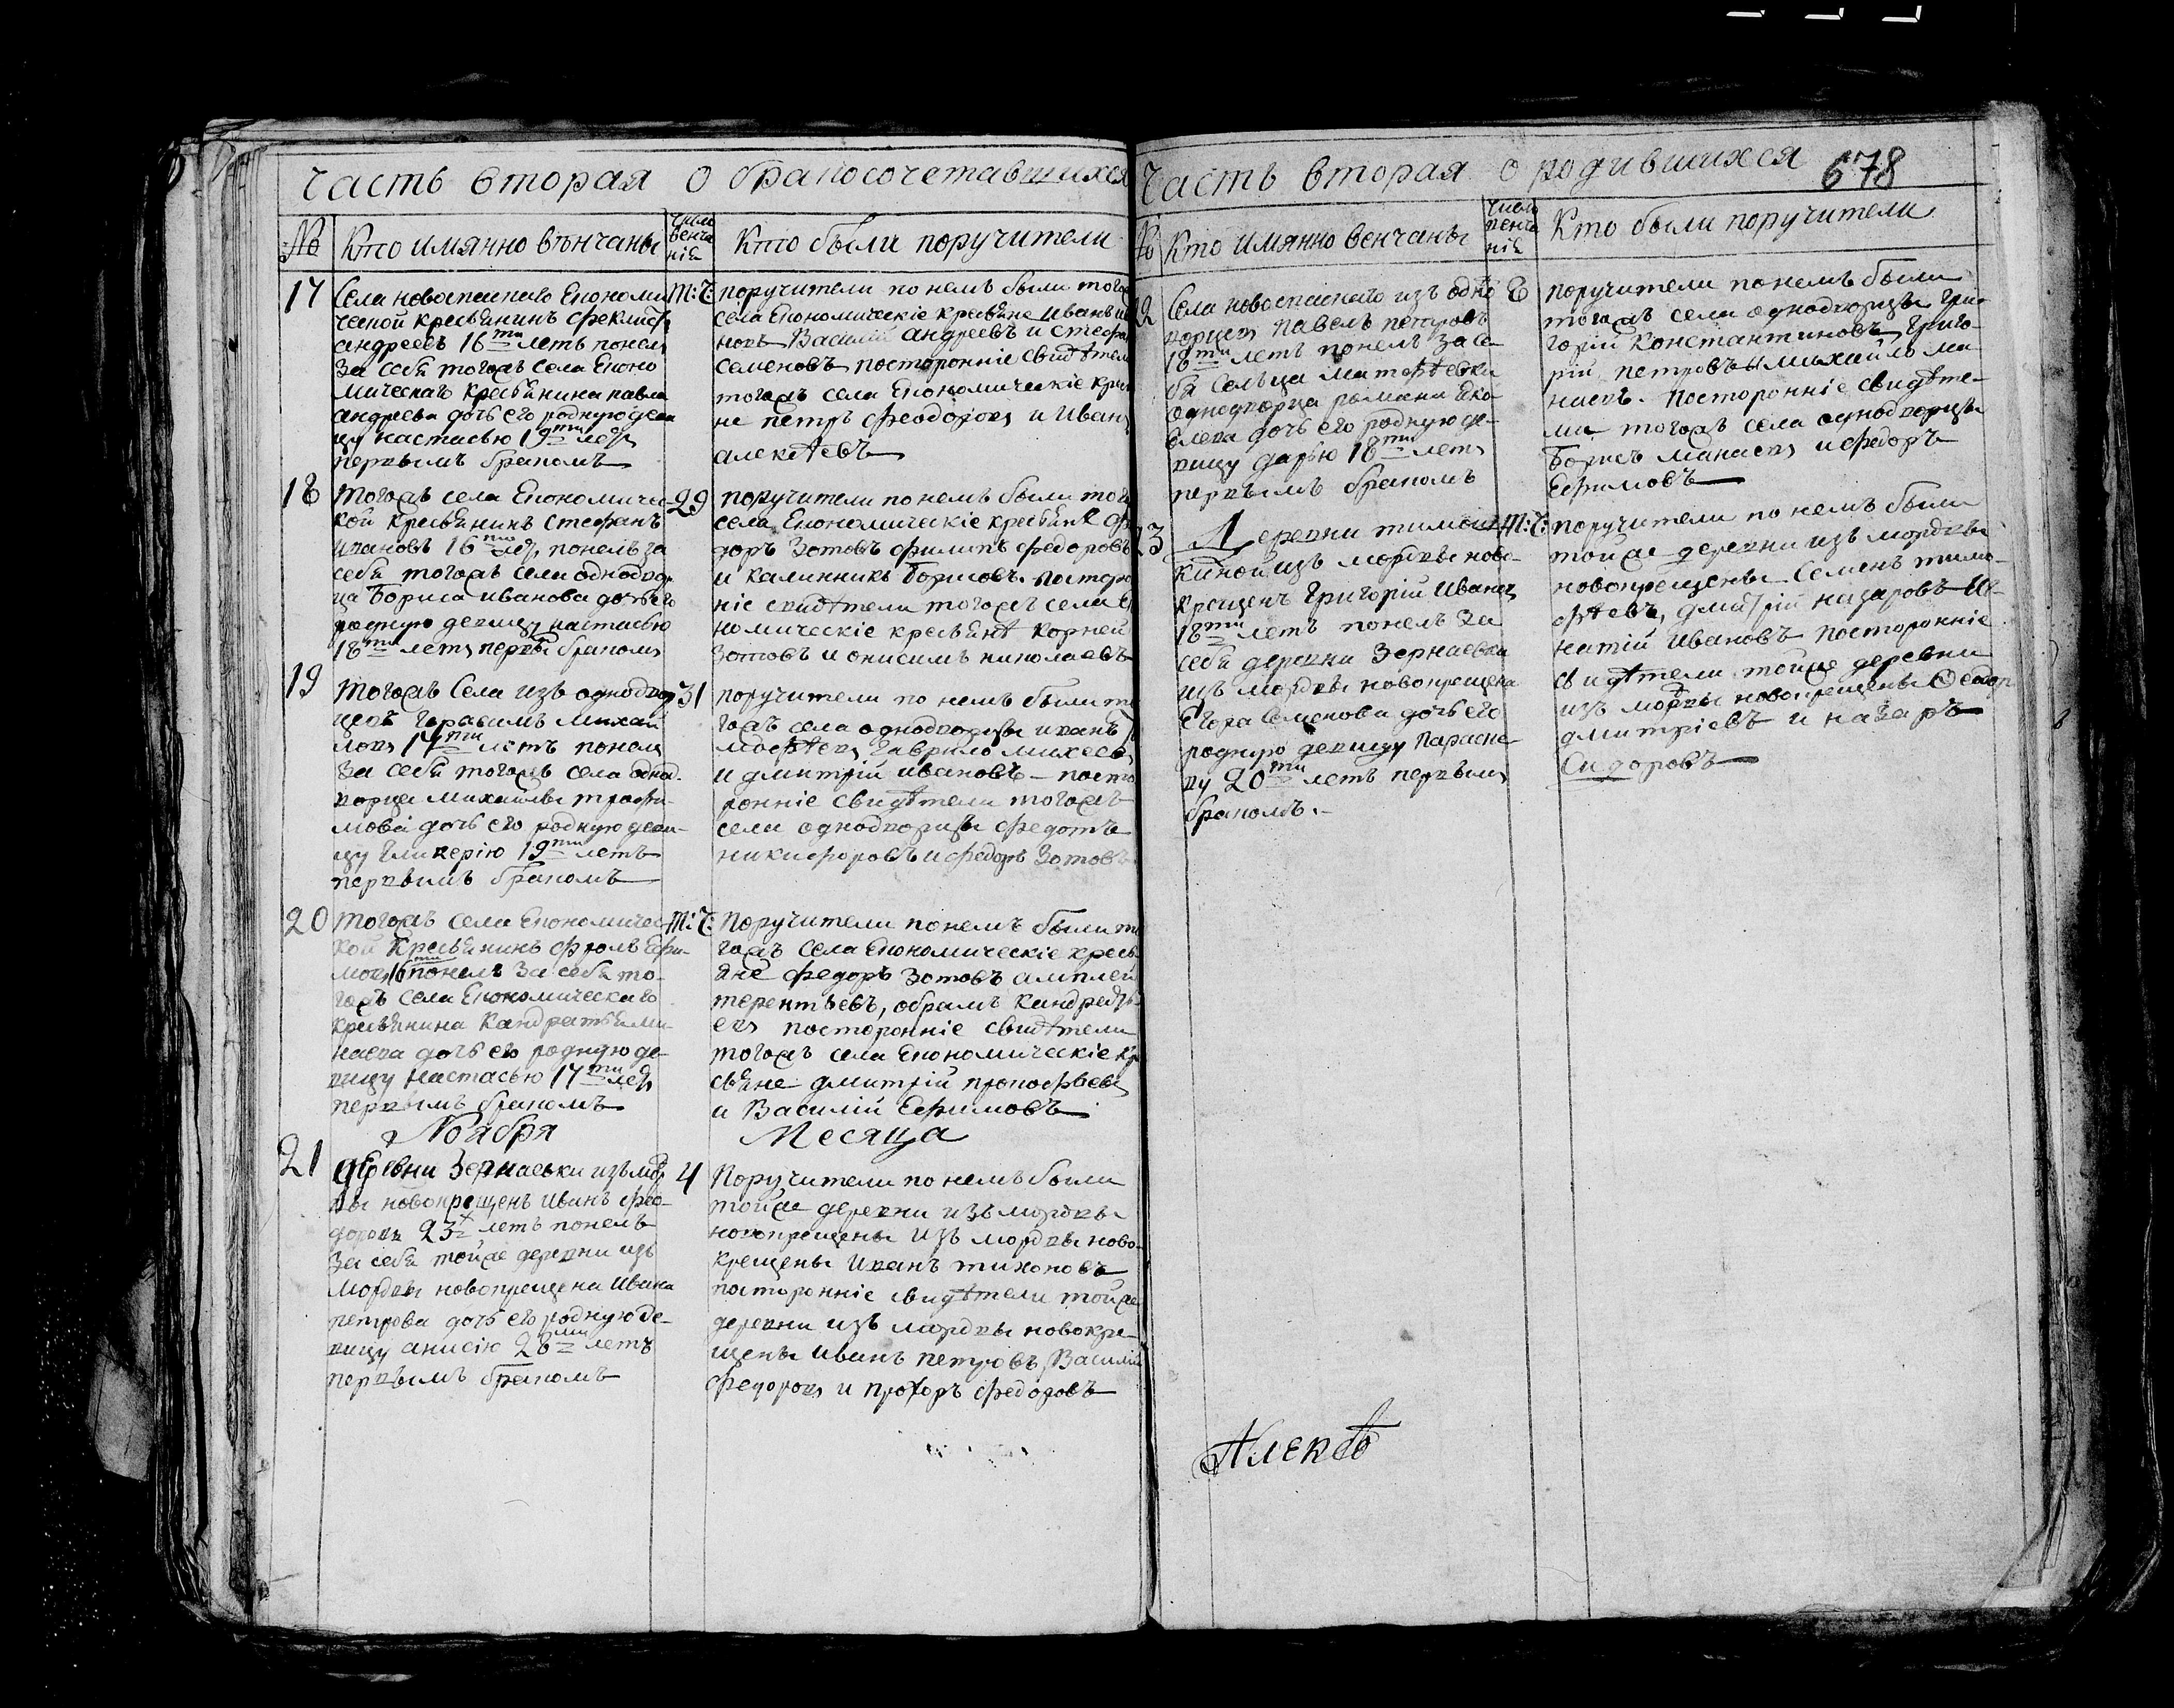 Часть вторая о бракосочетавшихся
№ Кто имянно вѣнчаны
число венча нія
Кто были поручители
17 Села новоспаскаго Економи
ческой кресьянинъ Феклистъ
андреевъ 16ти летъ понелъ
За себя тогожъ села Еконо
мическагъ кресьянина павла
андреева дочь его родную деви
цу настасью 19ти летъ
первымъ бракомъ
М: Т:
поручители по немъ были тогожъ
села Економическіе кресьяне Иванъ
Василій андреевъ и стефанъ
семеновъ посторонніе свидѣтели
тогожъ села Економическіе
не петръ феодоровъ и Иванъ
алексѣевъ
18 тогожъ села Економичес
кой кресьянинъ стефанъ
ивановъ 16ти летъ понелъ за
себя тогожъ села однодвор
ца Бориса иванова дочь его
родную девицу настасью
18ти летъ первы бракомъ
29
поручители по немъ были тогожъ
села Економическіе кресьянѣ фе
доръ Зотовъ филипъ федоровъ
и калинникъ Борисовъ. посторон
ніе свидѣтели тогожъ села Еко
номическіе кресьянѣ корней
Зотовъ и онисимъ николаевъ
19 тогожъ Села изъ однодвор
цовъ герасимъ михай
ловъ 17ти летъ понелъ
За себя тогожъ села однод
ворца михайлы трофи-
мова дочь его родную деви-
цу гликерію 19ти летъ
первымъ бракомъ
31
поручители по немъ были то
гожъ села однодворцы иванъ
гаврило михеевъ
и дмитрій ивановъ – посто
ронніе свидѣтели тогожъ
села однодворцы федотъ
никифоровъ и федоръ Зотовъ
20 тогожъ села Економичес
кой Кресьянинъ фролъ Ефи-
мовъ 16ти понелъ За себя то-
гожъ села Економическаго
кресьянина Кандратья ми-
наева дочь его родную де-
вицу настасью 17ти летъ
первымъ бракомъ
М: Т:
Поручители по немъ были то
гожъ села Економическіе кресь
яне федоръ Зотовъ амплей
терентьевъ, обрамъ кандрать
евъ посторонніе свидѣтели
тогожъ села Економическіе кре
сьяне дмитрій прокофьевъ
и Василій Ефимовъ
Ноября Месяца
21 деревни Зернаевки изъ морд
вы новокрещенъ иванъ фео-
доровъ 23х летъ понелъ
За себя тойже деревни изъ
мордвы новокрещена ивана
петрова дочь его родную де-
вицу анисію 28ми летъ
первымъ бракомъ
4
Поручители по немъ были
тойже деревни изъ мордвы
новокрещены изъ мордвы ново-
крещены иванъ тихоновъ
посторонніе свидѣтели тойже
деревни изъ мордвы новокре-
щены иванъ петровъ, Василій
федоровъ и прохоръ федоровъ
Часть вторая о родившихся 678
№ Кто имянно венчаны
число венча нія
Кто были поручители
2 Села новоспаскаго изъ одно
ворцевъ павелъ петровъ
18ти летъ понелъ за се-
бя сельца
однодворца романа
дочь его родную де-
вицу дарью 18ти летъ
первымъ бракомъ
поручители по немъ были
тогожъ села однодворцы гри-
горій константиновъ, григо-
рій петровъ и михайло ми
наевъ. посторонніе свидѣте-
ли тогожъ села однодворцы
Борисъ минаевъ и федоръ
Ефимовъ
23 Деревни
изъ мордвы ново-
крещенъ григорій Ивановъ
18ти летъ понелъ За
себя деревни Зернаевки
изъ мордвы новокрещена
Егора семенова дочь его
родную девицу параске-
ву 20ти летъ первымъ
бракомъ. –
М: Т:
поручители по немъ были
тойже деревни изъ мордвы
новокрещены Семенъ тимо-
фѣевъ, дмитрій назаровъ иг-
натій ивановъ посторонніе
свидѣтели тойже деревни
изъ мордвы новокрещены Ѳедоръ
дмитріевъ и назаръ
Сидоровъ
Алексѣ